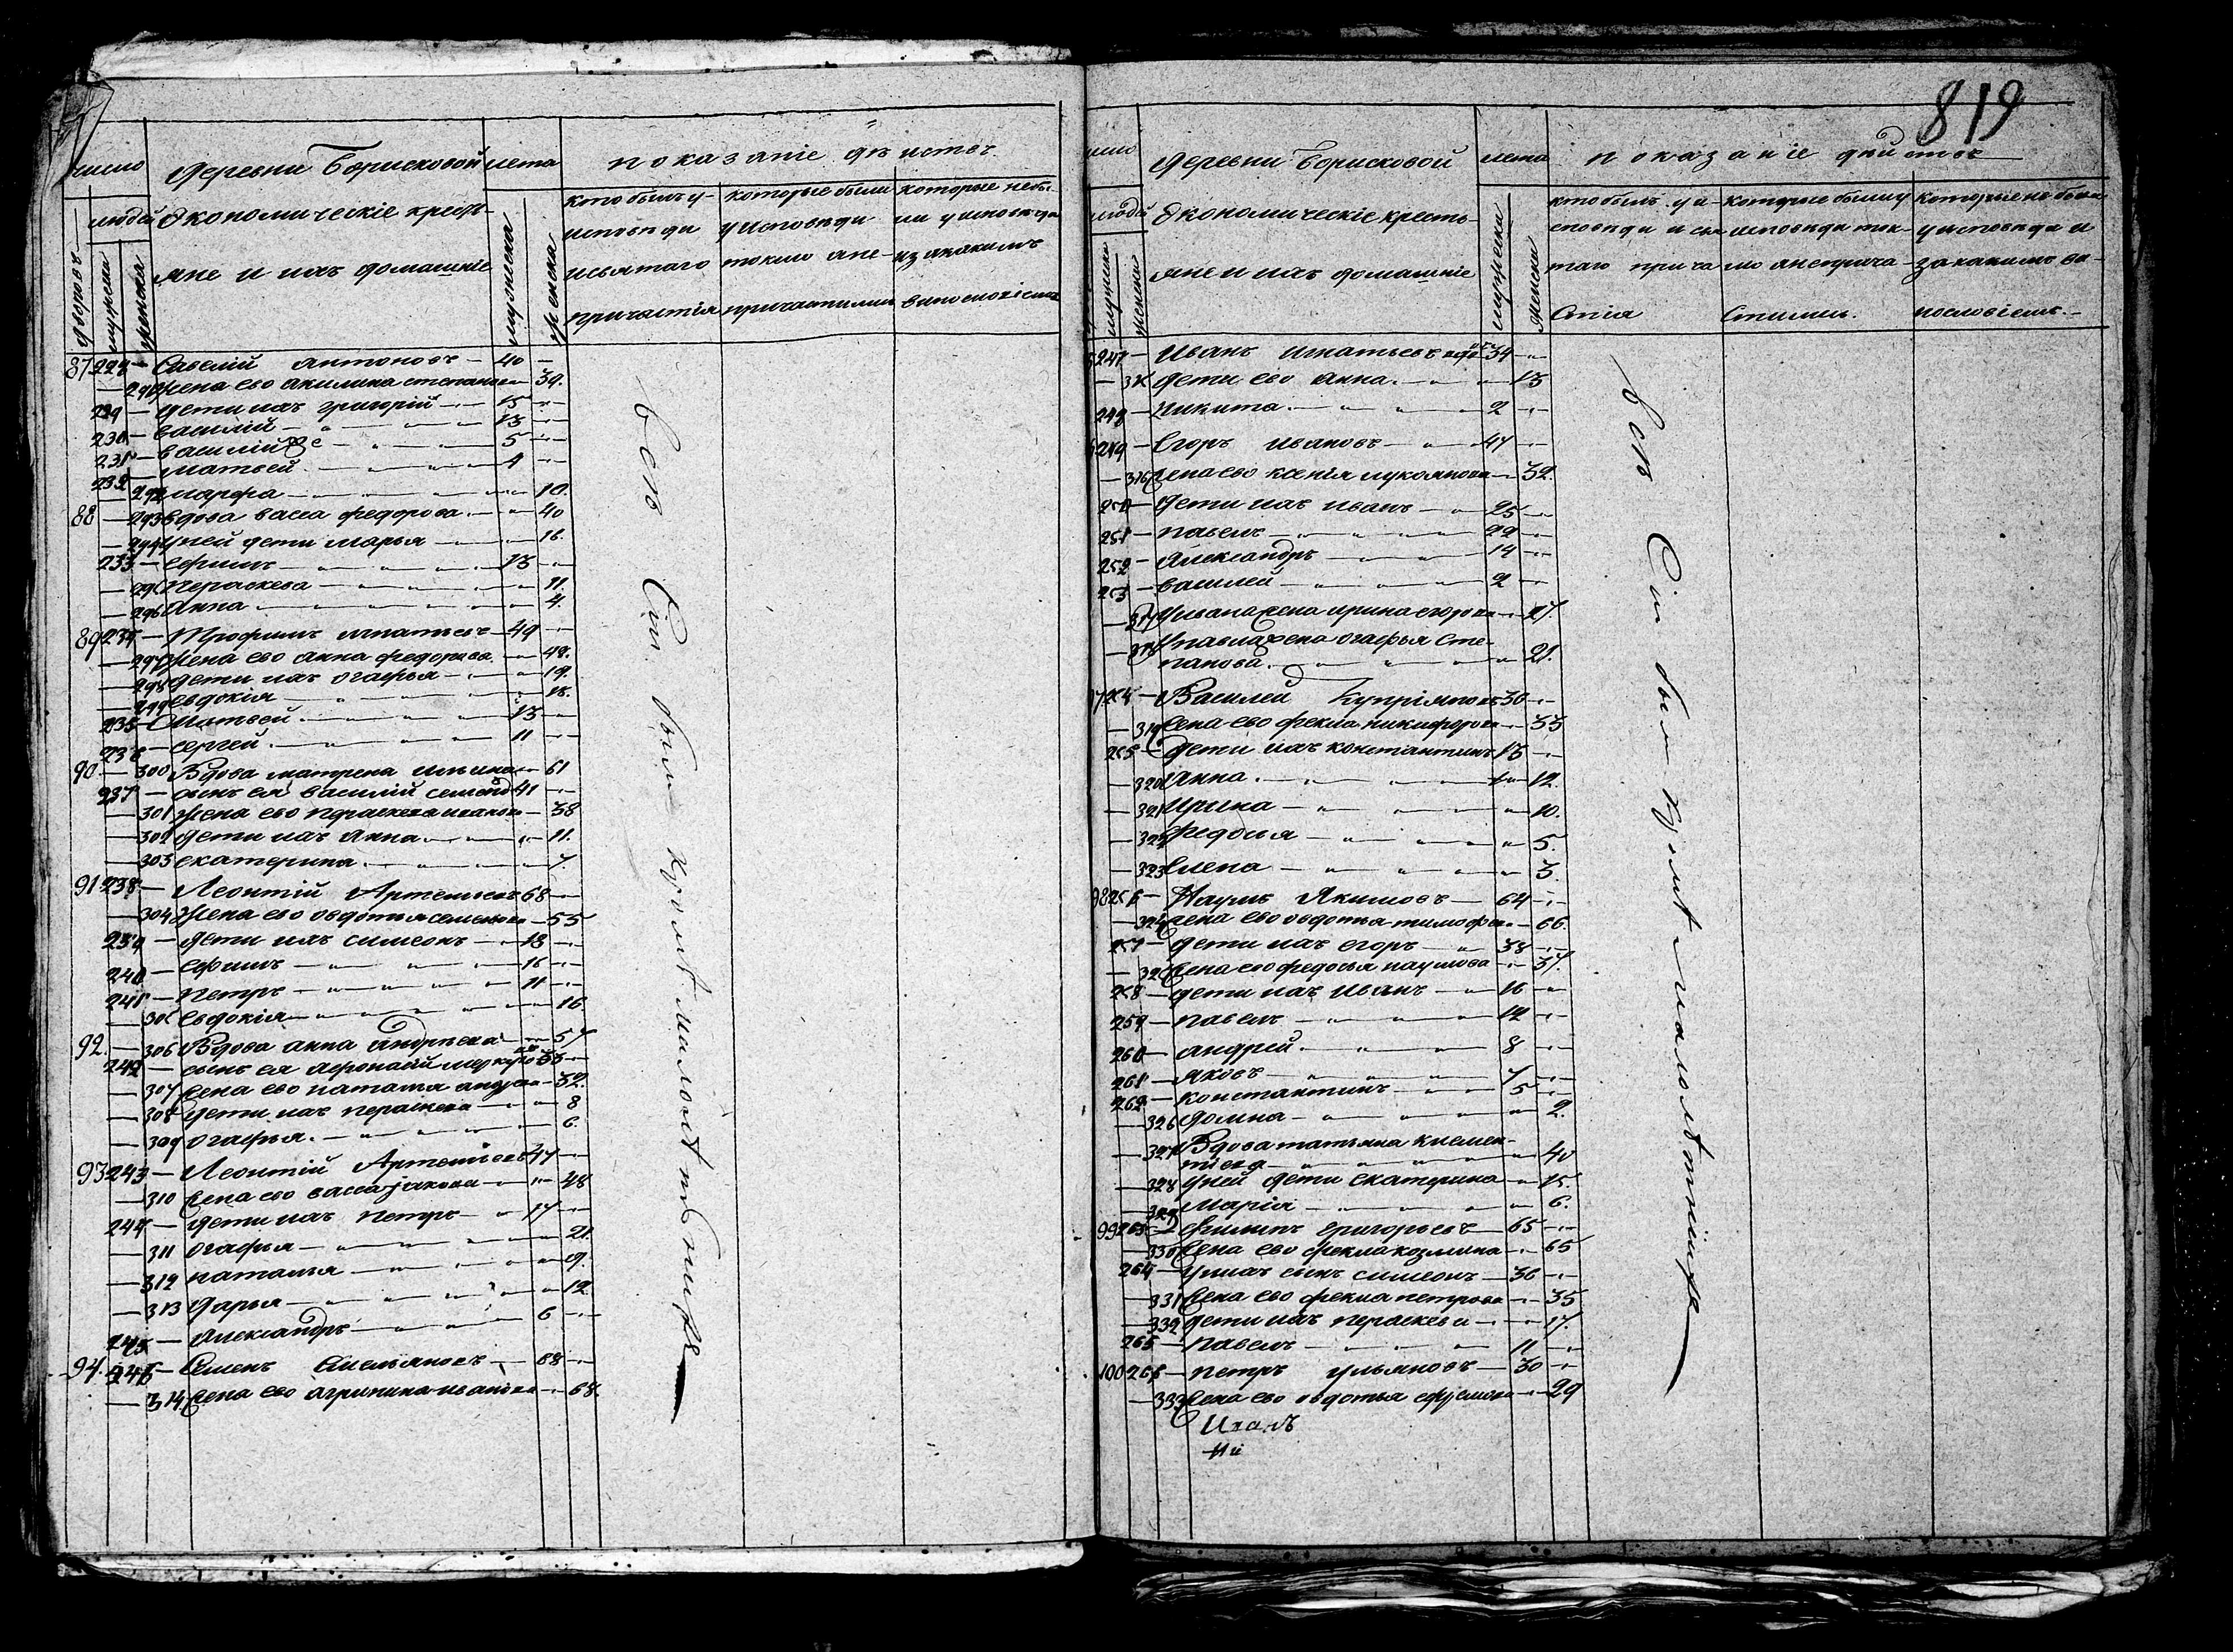 819
число
деревни Борисковой
лета
показаніе дѣйствъ
людей
Экономическіе кресть-
яне и ихъ домашніе
дворовъ
мужеска
женска
мужеска
женска
кто былъ у
исповѣди
и святаго
причастія
которые были
у исповѣди
токмо а не
причастились
которые небы-
ли у исповѣди
и за какимъ
винословіемъ
87 228 — Савелій Антоновъ — 40
— 291 жена ево акилина степанова 39.
229 — дети ихъ григорій — 15
230 — василій — 13
231 — василій же — 5
232 — матвей — 4
— 292 марфа — 10.
88 — 293 вдова васса федорова — 40
— 294 у ней дети марья — 16
233 — ефимъ — 13
— 295 Пераскева — 11.
— 296 Анна — 4.
89 234 — Трофимъ игнатьевъ — 49
— 297 жена ево анна федорова — 48.
— 298 дети ихъ огафья — 19.
— 299 евдокія — 18.
235 — Матвей — 13
236 — сергей — 11
90. — 300 Вдова матрена ильина — 61
237 — сынъ ея василій семенов 41
— 301 жена ево пераскева иванова — 38
— 302 дети ихъ Анна — 11.
— 303 екатерина — 7.
91 238 — Леонтій Артемьевъ 68
— 304 жена ево овдотья семенова — 55
239 — дети ихъ симеонъ — 18
240 — ефимъ — 16
241 — петръ — 11
— 305 Евдокія — 16.
92. — 306 Вдова анна андреева — 57
242 — сынъ ея афонасій 33
— 307 жена ево наталья андреева — 32.
— 308 дети ихъ пераскева — 8
— 309 огафья — 6.
93 243 — Леонтій Артемьевъ 47
— 310 жена ево васса јаковова — 48
244 — дети ихъ петръ — 17
— 311 огафья — 21.
— 312 наталья — 9.
— 313 дарья — 12.
245 — Александръ — 6
94. 246 — Семенъ Емельяновъ — 68
— 314 жена ево агрипина иванова — 68.
всѣ Сіи были
число
деревни Борисковой
лета
показаніе дѣйствъ
людей
Экономическіе кресть-
яне и ихъ домашніе
мужеска
женска
мужеска
женска
кто былъ у и-
сповѣди и свя
таго прича
стія
которые были у
исповѣди ток-
мо а неприча-
стились.
которые не были
у исповѣди и
за какимъ ви-
нословіемъ.
247 — Иванъ игнатьевъ 34
— 315 дети ево анна — 13
248 — никита — 2
249 — Егоръ ивановъ — 47
— 316 жена ево ксенія лукоянова — 32.
250 — дети ихъ иванъ — 25
251 — павелъ — 22
252 — Александръ — 14
253 — василей — 2
— 317 у ивана жена ирина егорова — 27.
— 318 у павла жена огафья сте-
панова — 21.
254 — Василей Купріяновъ 36
— 319 жена ево фекла никифорова — 33
255 — дети ихъ константинъ 13
— 320 Анна — 12.
— 321 Ирина — 10.
— 322 Федосья — 5.
— 323 Елена — 3.
98 256 — Наумъ Якимовъ — 64
— 324 жена ево овдотья тимофее — 66.
257 — дети ихъ егоръ — 38
— 325 жена ево федосья наумова — 37.
258 — дети ихъ иванъ — 16
259 — павелъ — 12
260 — андрей — 8
261 — яковъ — 7
262 — константинъ — 5
— 326 домна — 2.
— 327 Вдова татьяна климен-
тиева — 40
— 328 у ней дети екатерина — 15.
— 329 Марія — 6.
99 263 — Филипъ григорьевъ — 65
— 330 жена ево фекла козмина — 65
264 — у нихъ сынъ симеонъ — 36
— 331 жена ево фекла петрова — 35
— 332 дети ихъ пераскева — 17.
265 — павелъ — 11
100 266 — петръ ульяновъ — 30
— 333 жена ево овдотья ефремова — 29
всѣ Сіи были